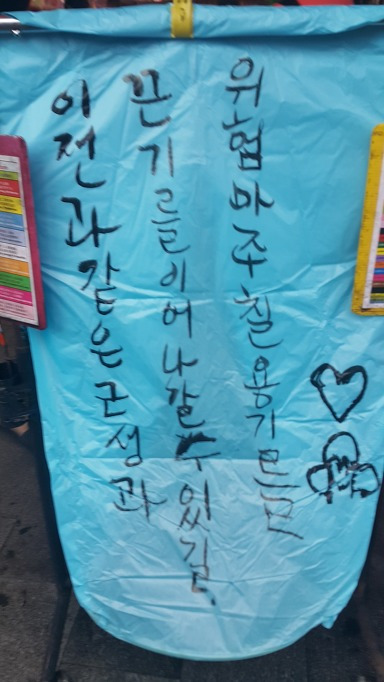 이전과 같은 근성과
끈기를 이어 나갈 수 있길.
위험 마주칠 용기를